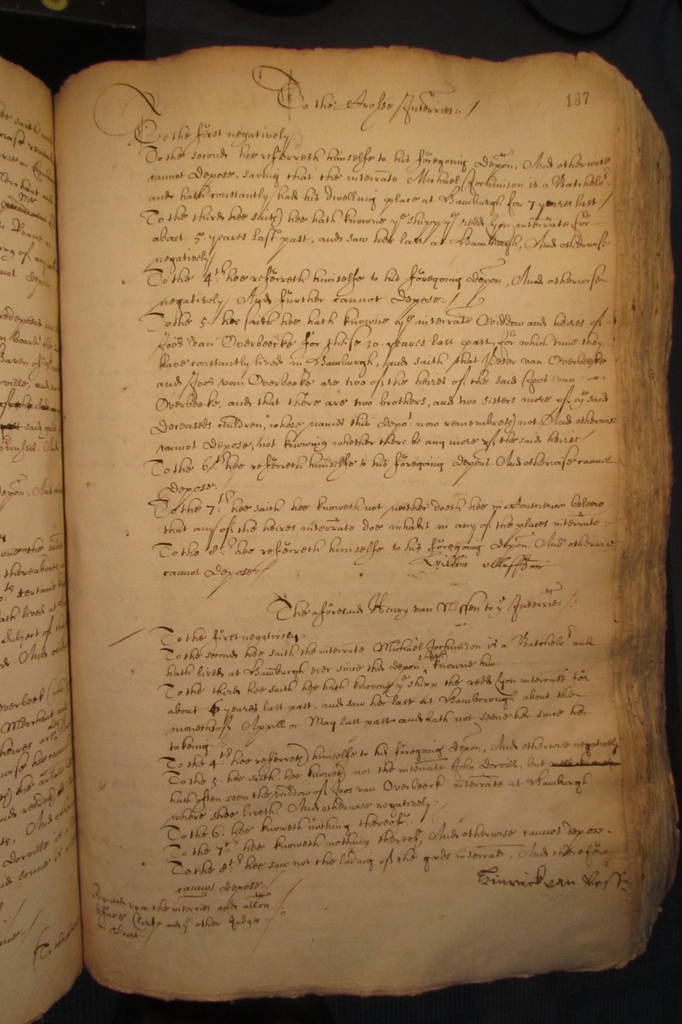 187
To the Crosse Interries:/
To the first negatively.
To the second hee referreth himselfe to his foregoeing depon, And otherwise
cannot depose, saving that the interrate Michael Jorhinson is a Batchelor
and hath constantly had his dwelling place at Hamburgh for 7 yeares last/
To the third hee saith hee hath knowne ye shipp ye redd Lyon interrate for
about 5 yeares last past, and saw her last at Hamburgh, And otherwise
negatively/
To the 4th hee referreth himselfe to his foregoeing depon, And otherwise
negatively/ And further cannot depose:/
To the 5. hee saith hee hath knowne ye interrate Widdow and heires of
Joos van Overbeecke for these 10 yeares last past, for which time they
have constantly lived in Hamburgh, and saith that Peter van Overbeeke
and Joos van Overbeeke are two of the heires of the said Joos van
Overbeeke, and that there are two brothers, and two sisters more of ye said
deceaseds children, whose names this depot now remembreth not And otherwise
cannot depose, not knowing whether there be any more of the said heires/
To the 6th hee referreth himselfe to his foregoeing depons. And otherwise cannot
depose.
To the 7th hee saith hee knoweth not neither doeth hee in Conscience beleeve
that any of the heires interrate doe inhabit in any of the places interrate.
To the 8th hee referreth himselfe to his foregoeing depon. And otherwise
cannot depose/
The aforesaid Henry van to ye Interries:
To the first negatively.
To the second hee saith the interrate Michael Jorhinson is a Batchelor and
hath lived at Hamburgh ever since this depont knowne him
To the third hee saith hee hath knowne ye shipp the redd Lyon interrate for
about yeares last past, and saw her last at Hamborough about the
moneths of Aprill or May last past and hath not seene her since her
takeing.
To the 4th hee referreth himselfe to his foregoeing depon, And otherwise negatively
To the 5. hee saith hee knoweth not the interrate John Dorville, but
hath often seen the widdow of Joos van Overbeeck interrate at Hamburgh
where shee liveth. And otherwise negatively.
To the 6. hee knoweth nothing thereof.
To the 7th hee knoweth nothing thereof, And otherwise cannot depose.
To the 8th hee saw not the lading of the goods interrate, And therefore
cannot depose/
Hinrick van
Repeated upon the interries and allon
before Clerke and ye other Judges
in Court.